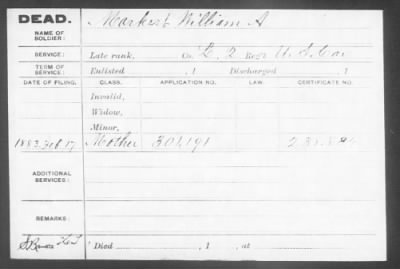 DEAD.
Markert William A
NAME OF SOLDIER:
SERVICE: Late rank, Co. L, 2 Reg't U.S. Cav.
TERM OF SERVICE: Enlisted , 1 Discharged , 1
DATE OF FILING. CLASS. APPLICATION NO. LAW. CERTIFICATE NO.
Invalid,
Widow,
Minor,
1883 Feb. 17 Mother 301,191
ADDITIONAL SERVICES:
REMARKS:
Died , 1 , at